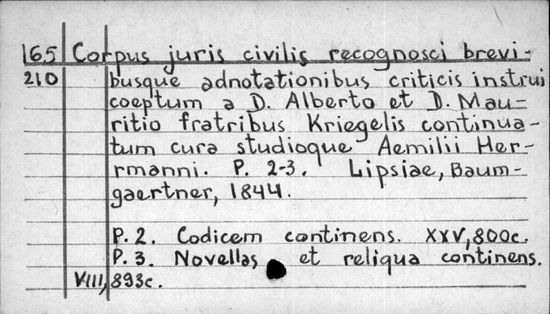 165 Corpus juris civilis recognosci brevi-
210 busque adnotationibus criticis instrui
coeptum a D. Alberto et D. Mau-
ritio fratribus Kriegelis continua-
tum cura studioque Aemilii Her-
rmanni. P. 2-3. Lipsiae, Baum-
gaertner, 1844.
P. 2. Codicem continens. XXV, 800c.
P. 3. Novellas et reliqua continens.
VIII, 893c.